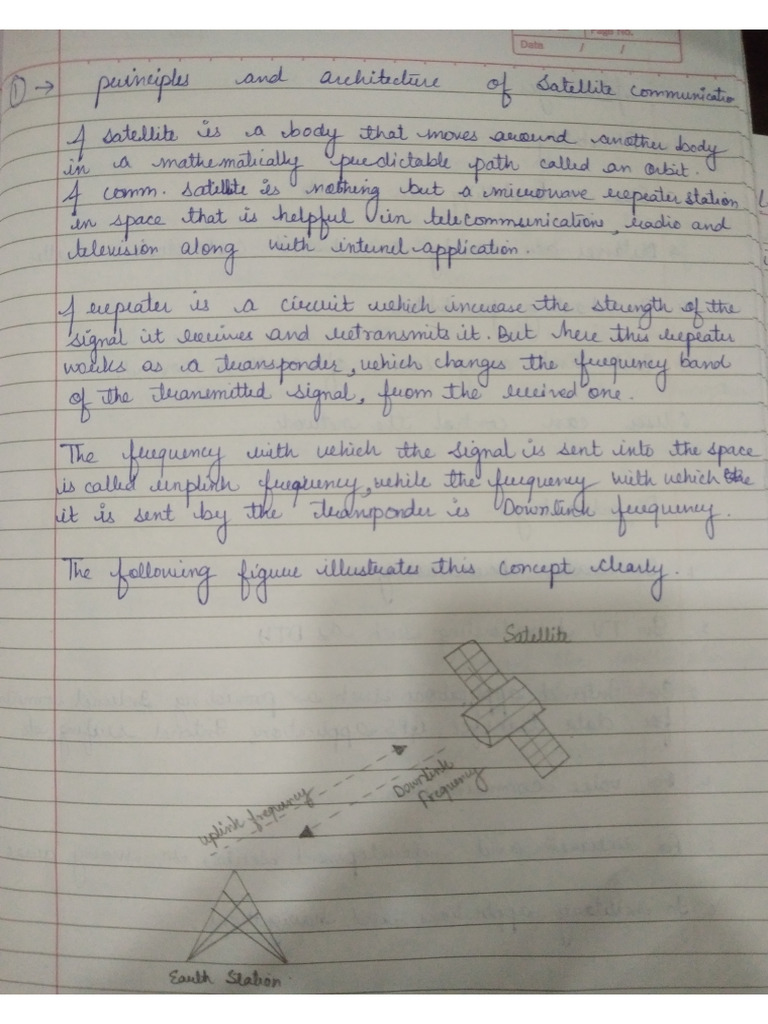 Page No.
Date / /
① → principles and architecture of Satellite communication
A satellite is a body that moves around another body
in a mathematically predictable path called an orbit.
A comm. satellite is nothing but a microwave repeater station
in space that is helpful in telecommunication, radio and
television along with internel application.
A repeater is a circuit which increase the strength of the
signal it receives and retransmits it. But here this repeater
works as a transponder, which changes the frequency band
of the transmitted signal, from the received one.
The frequency with which the signal is sent into the space
is called unplink frequency, while the frequency with which
it is sent by the transponder is Downlink frequency.
The following figure illustrates this concept clearly.
Satellite
Downlink
frequency
uplink frequency
Earth Station